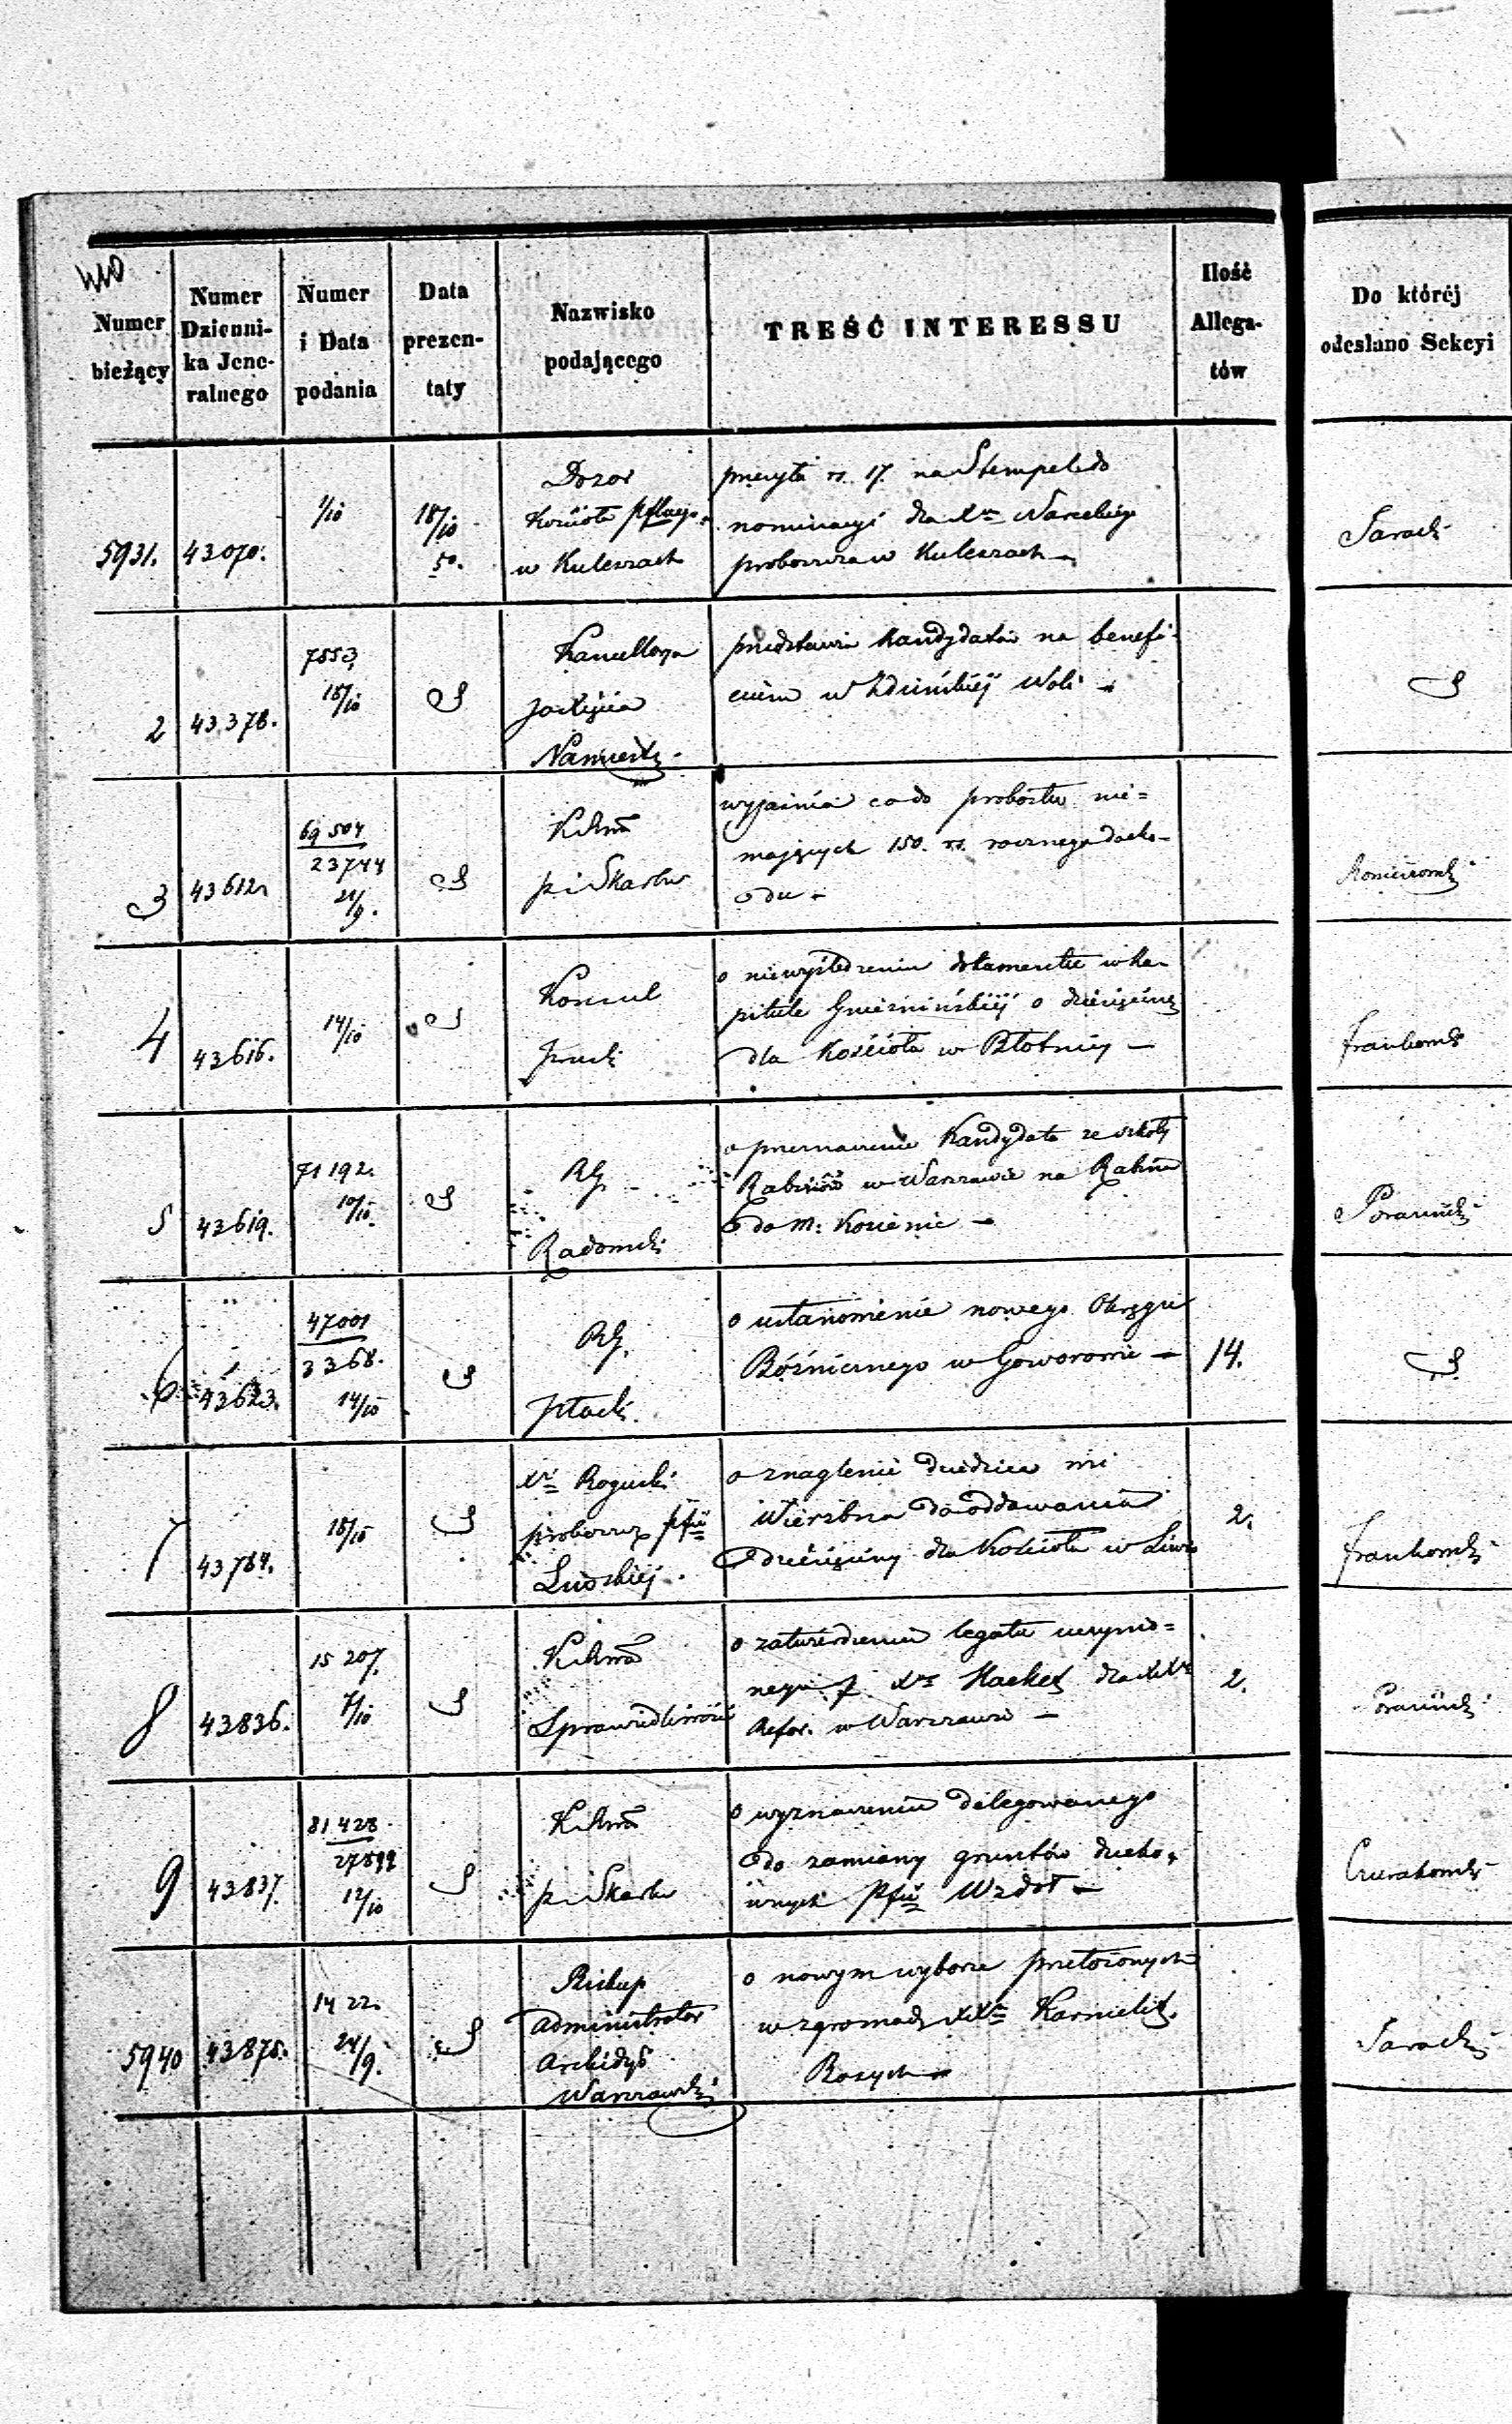 Numer bieżący
Numer Dzienni-
ka Jene-
ralnego
Numer
i Data
podania
Data
prezen-
taty
Nazwisko
podającego
TREŚĆ INTERESSU
Ilość
Allega-
tów
Do któréj
odesłano Sekcyi
5931. 43070. 1/10 18/10 50.
Dozor
Kościoła
w Kuleszach
przesyła rs. 17. na Stempel do
nominacyi dla
proboszcza w Kuleszach
2 43378. 7553 18/10
Kancellarya
Namiestn.
przedstawia kandydata na benefi-
cium w Zduńskiej Woli
3 43612. 69504 23744 21/9.
KRwa
p i Skarbu
wyjaśnia co do probostw nie=
mających 150. rs. rocznego docho-
du
4 43616. 14/10
Konsul
Pruski
o niewyśledzeniu dokumentu w Ka-
pitule Gnieźnińskiej o dziesięcinę
dla Kościoła w Błotnicy
Frankowski
5 43619. 71192. 10/10.
RG.
Radomski
o przeznaczenie Kandydata ze szkoły
Rabinów w Warszawie na Rabina
do m: Kozienic
6 43623. 47001 3368. 14/10
RG.
Płocki.
o ustanowienie nowego Okręgu
Bóźnicznego w Goworowie 14.
7 43784. 18/10
Xr Rogucki
proboszcz
o znaglenie dziedzica wsi
Wierzbna do oddawania
dziesięciny dla Kościoła w Liwie 2.
Frankowski
8 43836. 15207. 7/10
KRwa
Sprawiedliwości
o zatwierdzenie legatu uczynio=
nego p. Xa Hackel dla XX
Refor. w Warszawie 2.
9 43837. 81428 27899 12/10
KRwa
p i Skarbu
o wyznaczenie delegowanego
do zamiany gruntów ducho-
wnych Wzdół
5940 43875. 1422. 24/9.
Biskup
administrator
Archidye
Warszawski
o nowym wyborze przełożonych
w zgromadz XX Karmelit.
Bosych